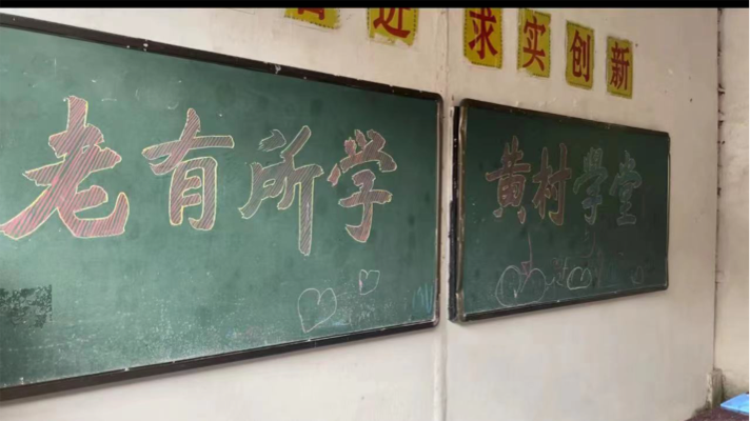 进 求 实 创 新
老有所学
黄村学堂